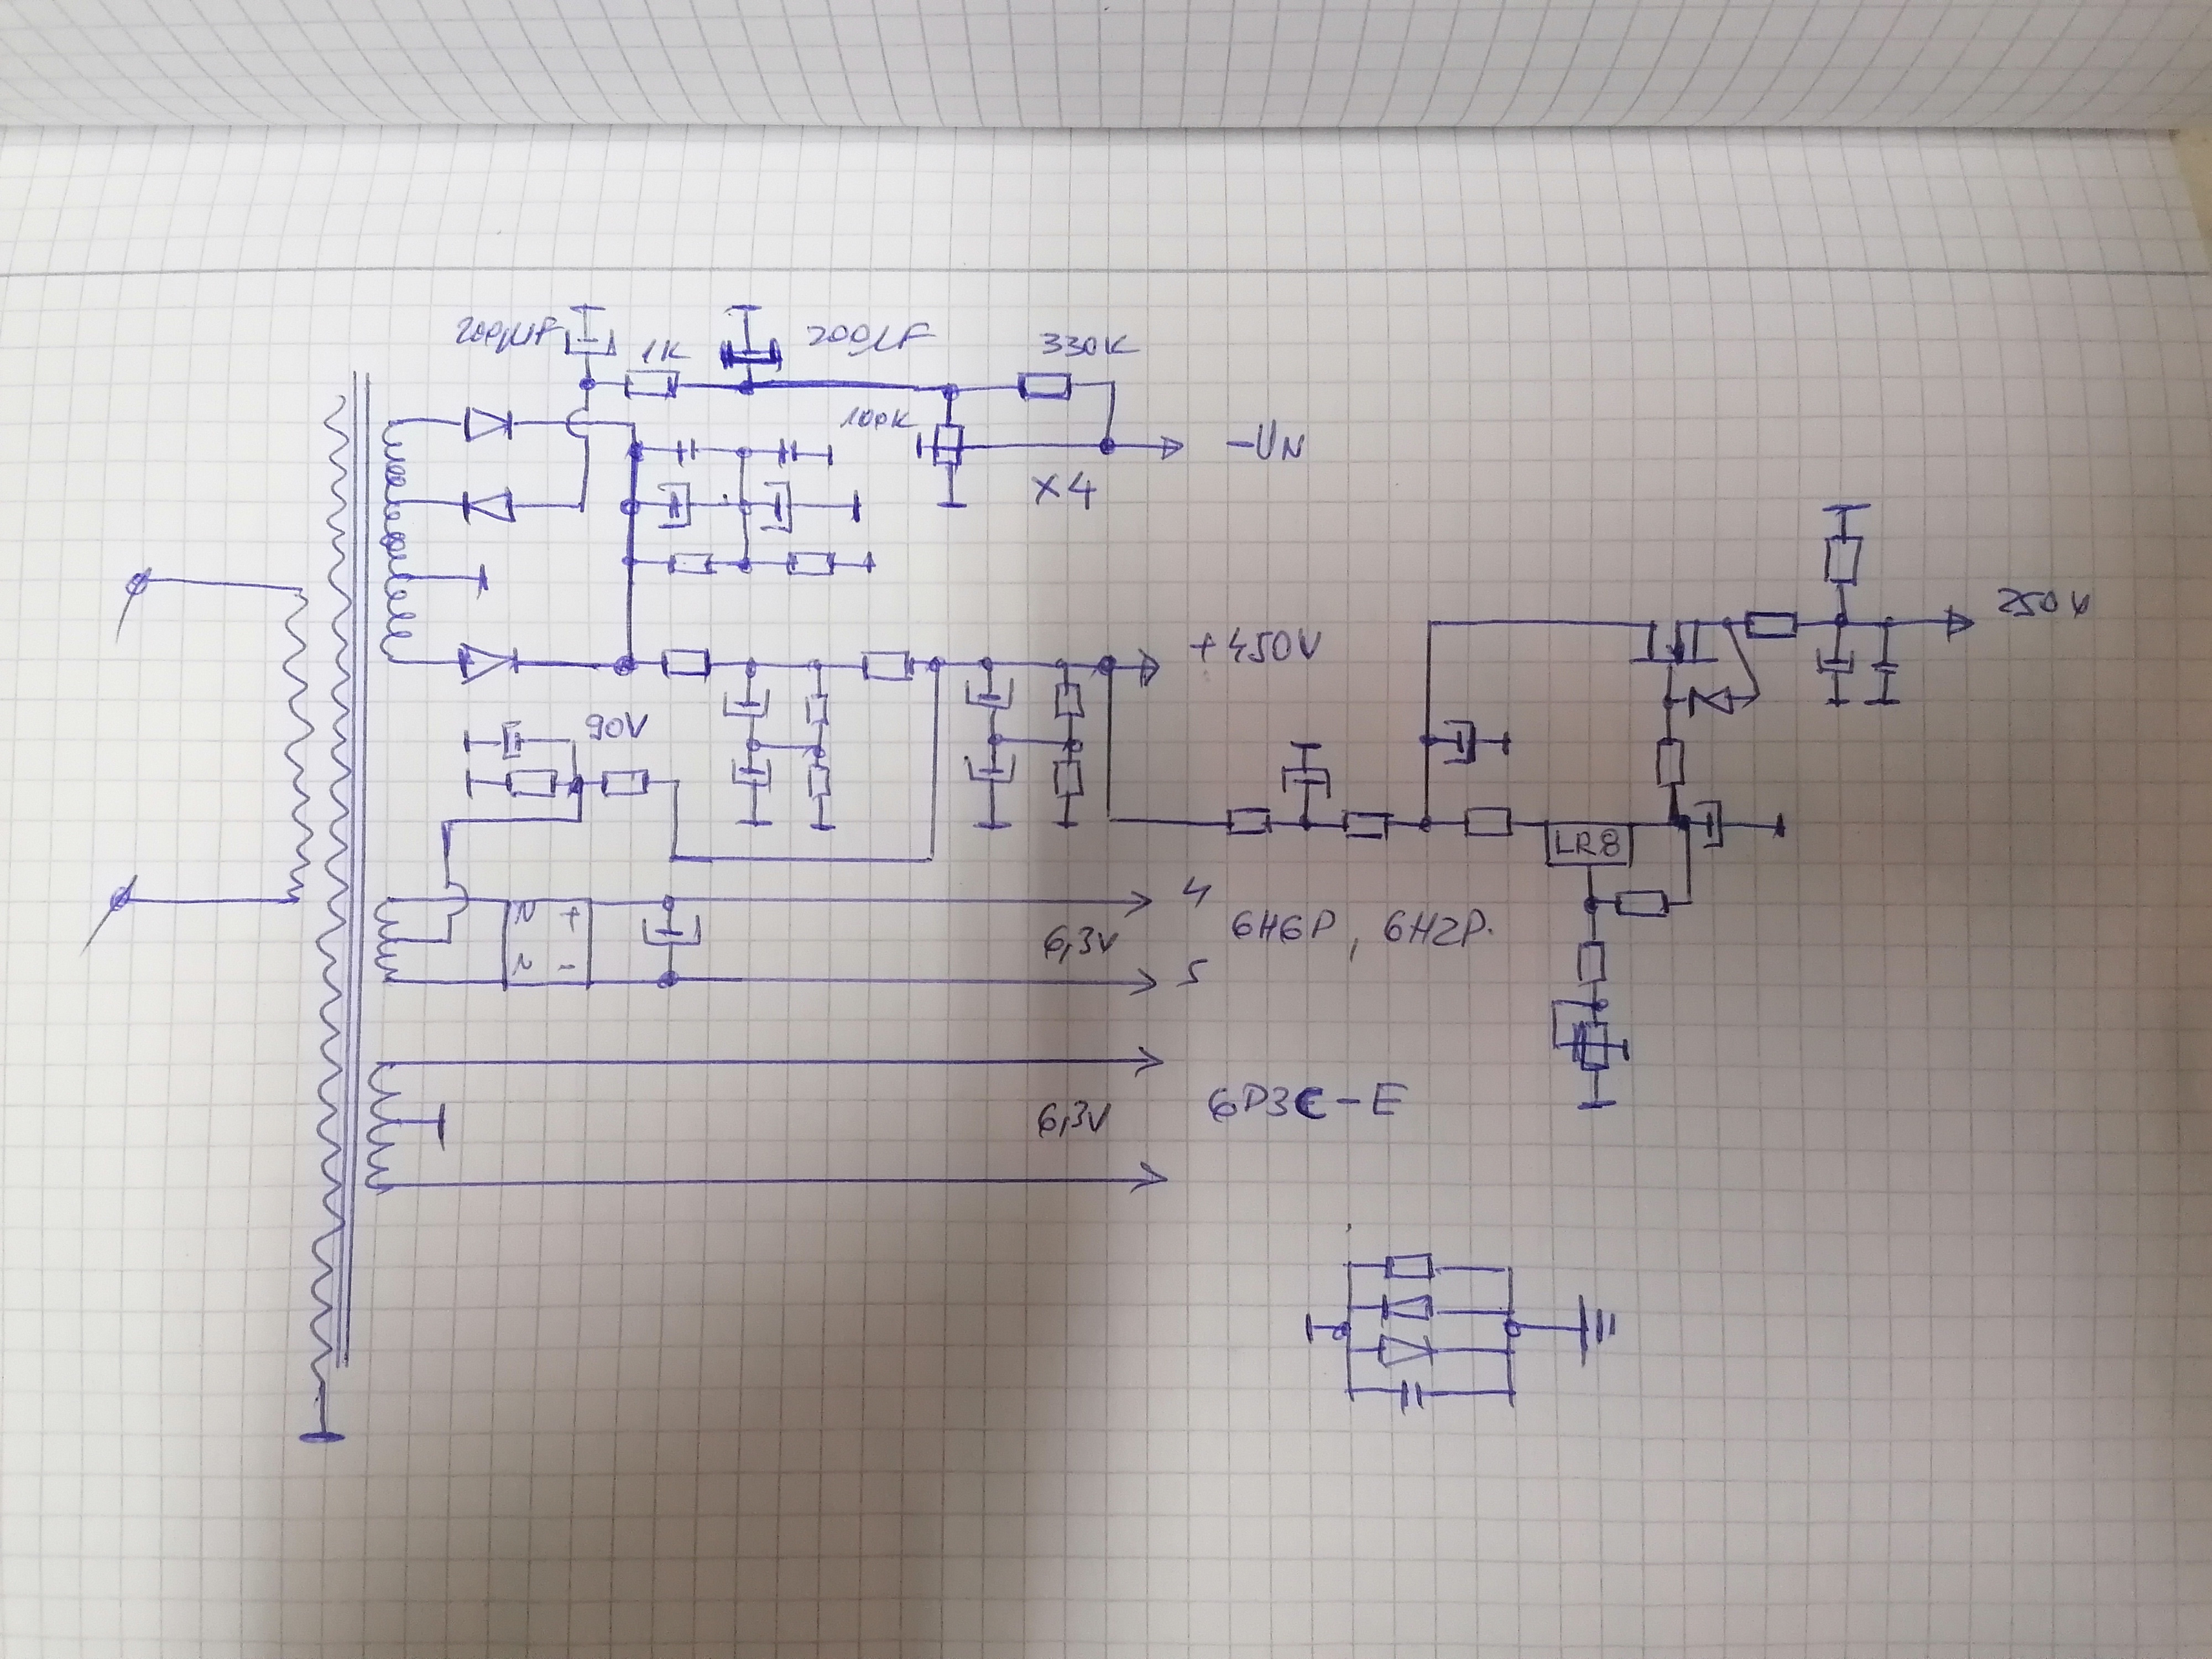 200µF
1K
200µF
330K
100K
-UN
x4
250V
+450V
90V
LR8
~ +
~ -
4
6,3V
6H6P, 6H2P.
5
6,3V
6P3C-E